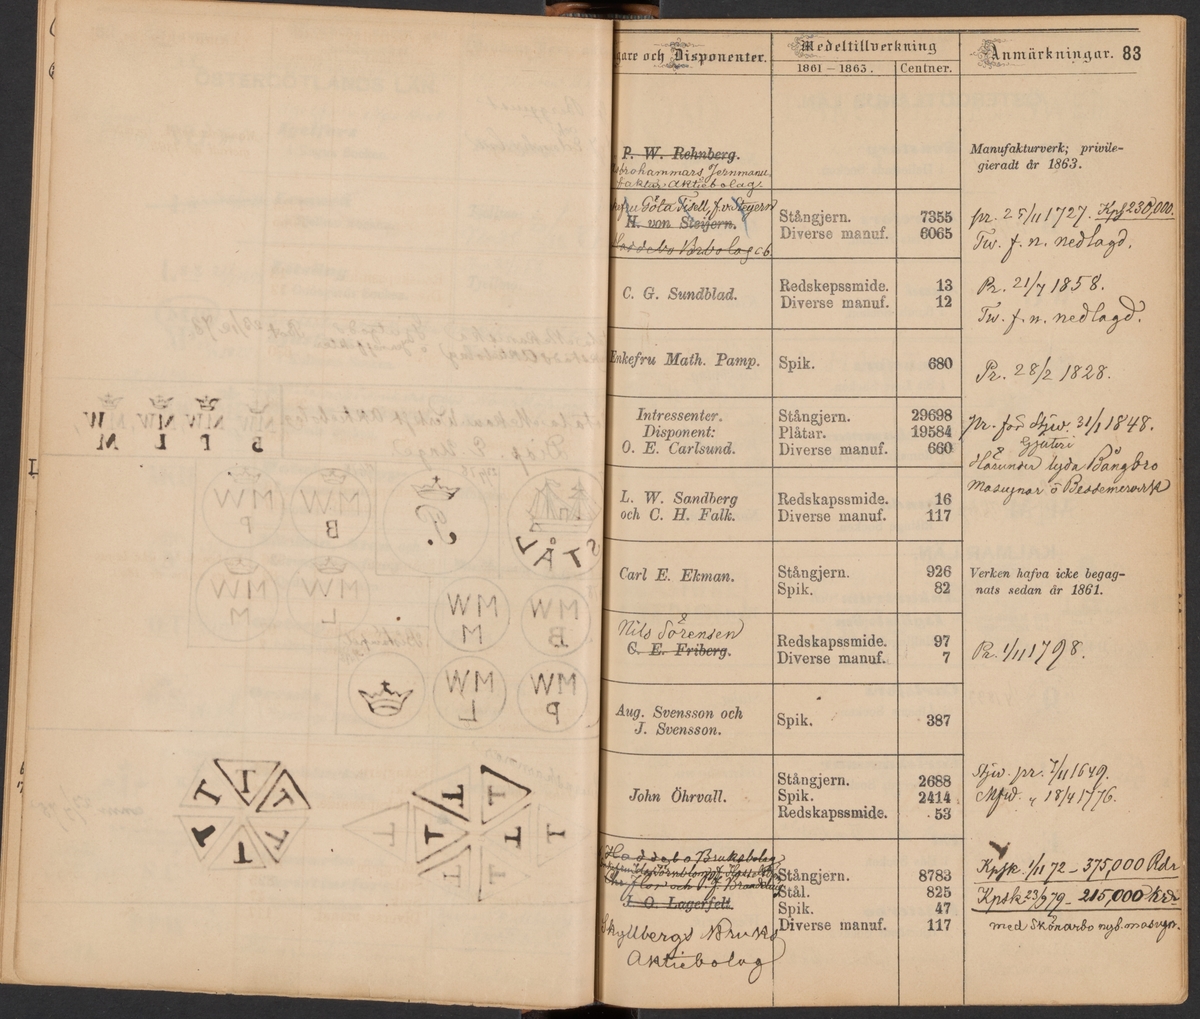 gare och Disponenter.
Medeltillverkning
1861 – 1863. Centner.
Anmärkningar. 83
P. W. Rehnberg.
brohammars Jernmanu
faktur Aktiebolag.
Manufakturverk; privile-
gieradt år 1863.
fru Göta Tisell, f. v. Steyern
H. von Steijern.
Stångjern. 7355
Diverse manuf. 6065
pr. 25/11 1727. Kpsk 230,000.
Tw. f. n. nedlagd.
C. G. Sundblad.
Redskepssmide. 13
Diverse manuf. 12
Pr. 21/7 1858.
Tw. f. n. nedlagd.
Enkefru Math. Pamp.
Spik. 680
Pr. 28/2 1828.
Intressenter.
Disponent:
O. E. Carlsund.
Stångjern. 29698
Plåtar. 19584
Diverse manuf. 660
pr. för Stjw. 31/1 1848.
Gjuteri
Härunder lyda Bångbro
Masugnar o Bessemerverk
L. W. Sandberg
och C. H. Falk.
Redskapssmide. 16
Diverse manuf. 117
Carl E. Ekman.
Stångjern. 926
Spik. 82
Verken hafva icke begag-
nats sedan år 1861.
Nils Sörensen
C. E. Friberg.
Redskapssmide. 97
Diverse manuf. 7
Pr. 1/11 1798.
Aug. Svensson och
J. Svensson.
Spik. 387
John Öhrvall.
Stångjern. 2688
Spik. 2414
Redskapssmide. 53
Stjw. pr. 7/11 1649.
Mfw. " 18/4 1776.
Haddebo Bruksbolag
J. O. Lagerfelt.
Skyllbergs Bruks
Aktiebolag
Stångjern. 8783
Stål. 825
Spik. 47
Diverse manuf. 117
Kpsk. 1/11 72 – 375,000 Rdr
Kpsk 23/9 79 – 215,000 krdr
med Skönarbo nyb. masugn.